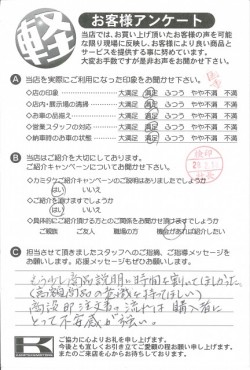 軽
お客様アンケート
当店では、お買い上げ頂いたお客様の声を可能
な限り現場に反映し、お客様により良い商品と
サービスを提供する事に努めています。
大変お手数ですが是非お声をお聞かせ下さい。
A 当店を実際にご利用になった印象をお聞かせ下さい。
◇店の印象 大満足 満足 ふつう やや不満 不満
◇店内・展示場の清掃 大満足 満足 ふつう やや不満 不満
◇お車の品揃え 大満足 満足 ふつう やや不満 不満
◇営業スタッフの対応 大満足 満足 ふつう やや不満 不満
◇納車時のお車の状態 大満足 満足 ふつう やや不満 不満
B 当店はご紹介を大切にしております。
ご紹介キャンペーンについてお聞かせ下さい。
◇カミタケご紹介キャンペーンのご説明はありましたでしょうか
はい いいえ
◇ご紹介を頂けますでしょうか
はい いいえ
◇具体的にご紹介頂ける方との関係をお聞かせ頂けますでしょうか
ご親戚 ご友人 職場の方 機会があれば紹介したい
C 担当させて頂きましたスタッフへのご指摘、ご指導メッセージを
お願いします。応援メッセージもぜひお願いします。
もう少し商品説明に時間を割いてほしかった。
(高額商品の意識を持ってほしい)
商談即注文書の流れは購入者に
とって不安感が強い。
K
ご協力に心よりお礼を申し上げます。
今後とも宜しくお引き立てご愛顧の程お願い申し上げます。
またのご来店を心からお待ちしております。